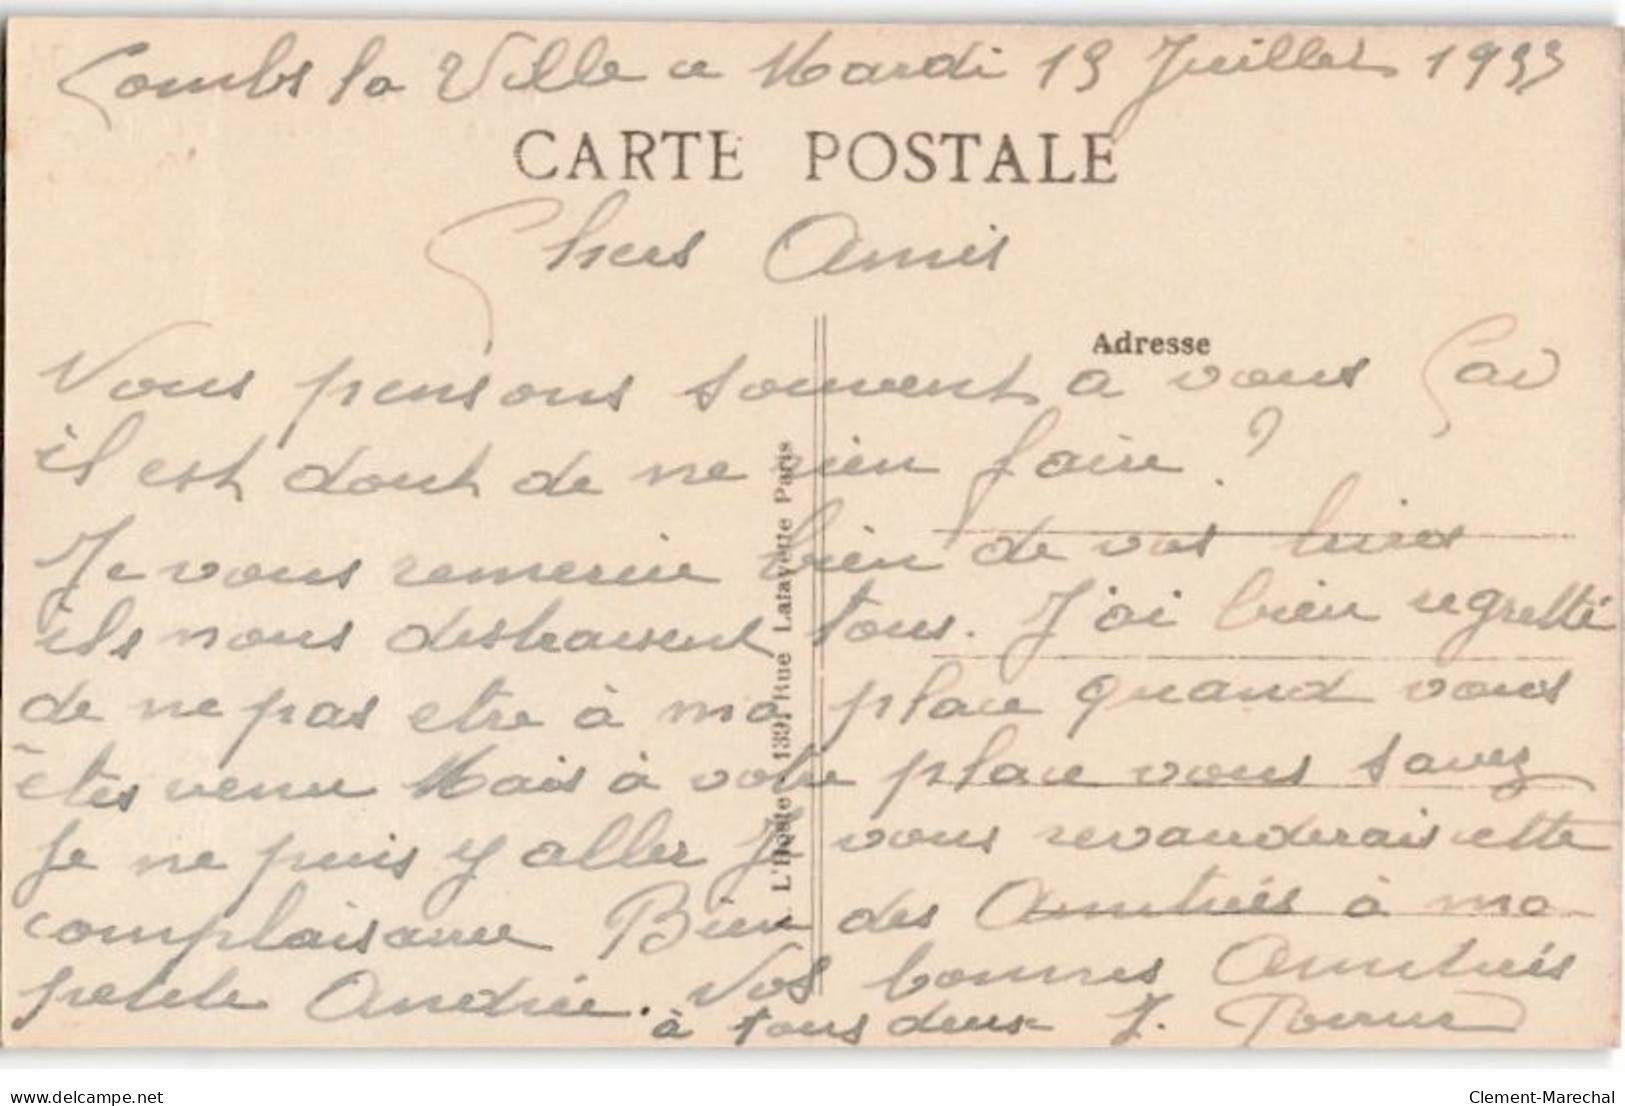 Combs la Ville ce Mardi 19 Juillet 1933
CARTE POSTALE
Chers Amis
Adresse
Vous pensons souvent a vous Car
il est dont de ne rien faire ?
Je vous remercie bien de vos livres
ils nous destraisent tous. J'ai bien regretté
de ne pas etre à ma place quand vous
êtes venu Mais à votre place vous savez
Je ne puis y aller Je vous revanderais cette
complaisance Bien des Amitiés à ma
petite Andrée. Vos bonnes Amitiés
à tous deux J.
L'Hoste, 139, Rue Lafayette Paris
delcampe.net
Clement-Marechal